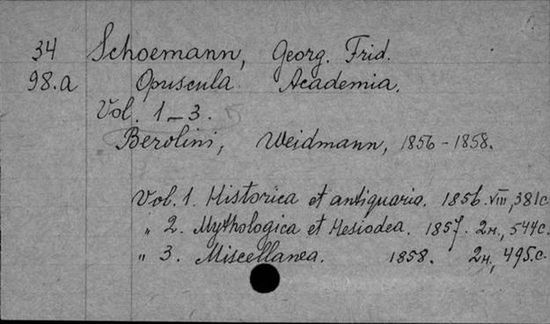 34 Schoemann, Georg. Frid.
98.a Opuscula Academia.
Vol. 1-3.
Berolini, Weidmann, 1856-1858.
Vol. 1. Historica et antiquaria. 1856. VIII, 381c
" 2. Mythologica et Hesiodea. 1857. 2н., 544c.
" 3. Miscellanea. 1858. 2н, 495.c.